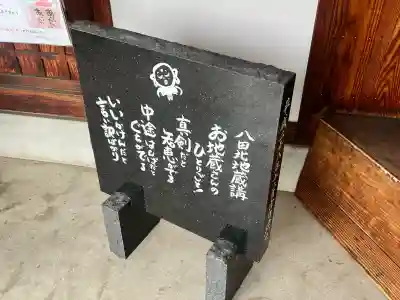 八田北地蔵講
お地蔵さんの
ひとりごと
真剣だと
知恵がでる
中途はんぱだと
ぐちがでる
いいかげんだと
言い訳ばかり